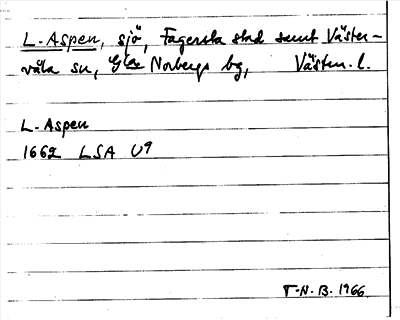 L-Aspen, sjö, Fagersta stad samt Väster-
våla sn, Gla Norbergs bg, Västm. l.
L-Aspen
1662 LSA U9
T-N.B. 1966